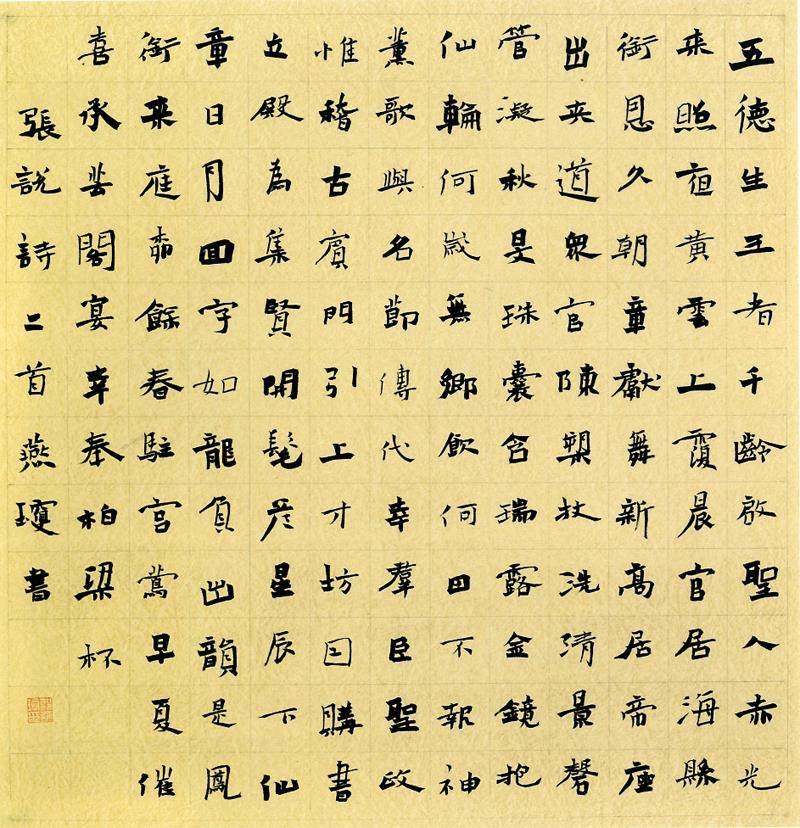 五德生王者千齡啟聖人赤光
来照夜黄雲上覆晨官居海縣
銜恩久朝章獻舞新高居帝座
出夾道衆官陳槊杖洗清景磬
管凝秋旻珠囊含瑞露金鏡抱
仙輪何歲無鄉飲何田不報神
薰歌與名節傳代幸羣臣聖政
惟稽古賓門引上才坊因購書
立殿為集賢開髦彥星辰下仙
章日月回字如龍負出韻是鳳
銜来庭柳餘春駐宮鶯早夏催
喜承芸閣宴幸奉柏梁杯
張說詩二首燕瓊書